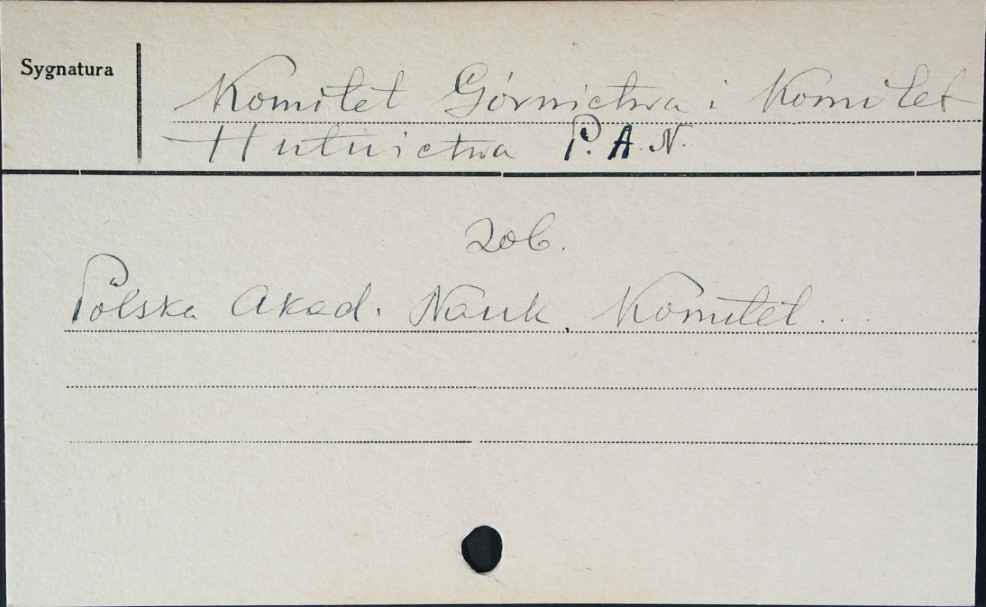 Sygnatura
Komitet Górnictwa i Komitet
Hutnictwa P.A.N.
zob.
Polska Akad. Nauk. Komitet...